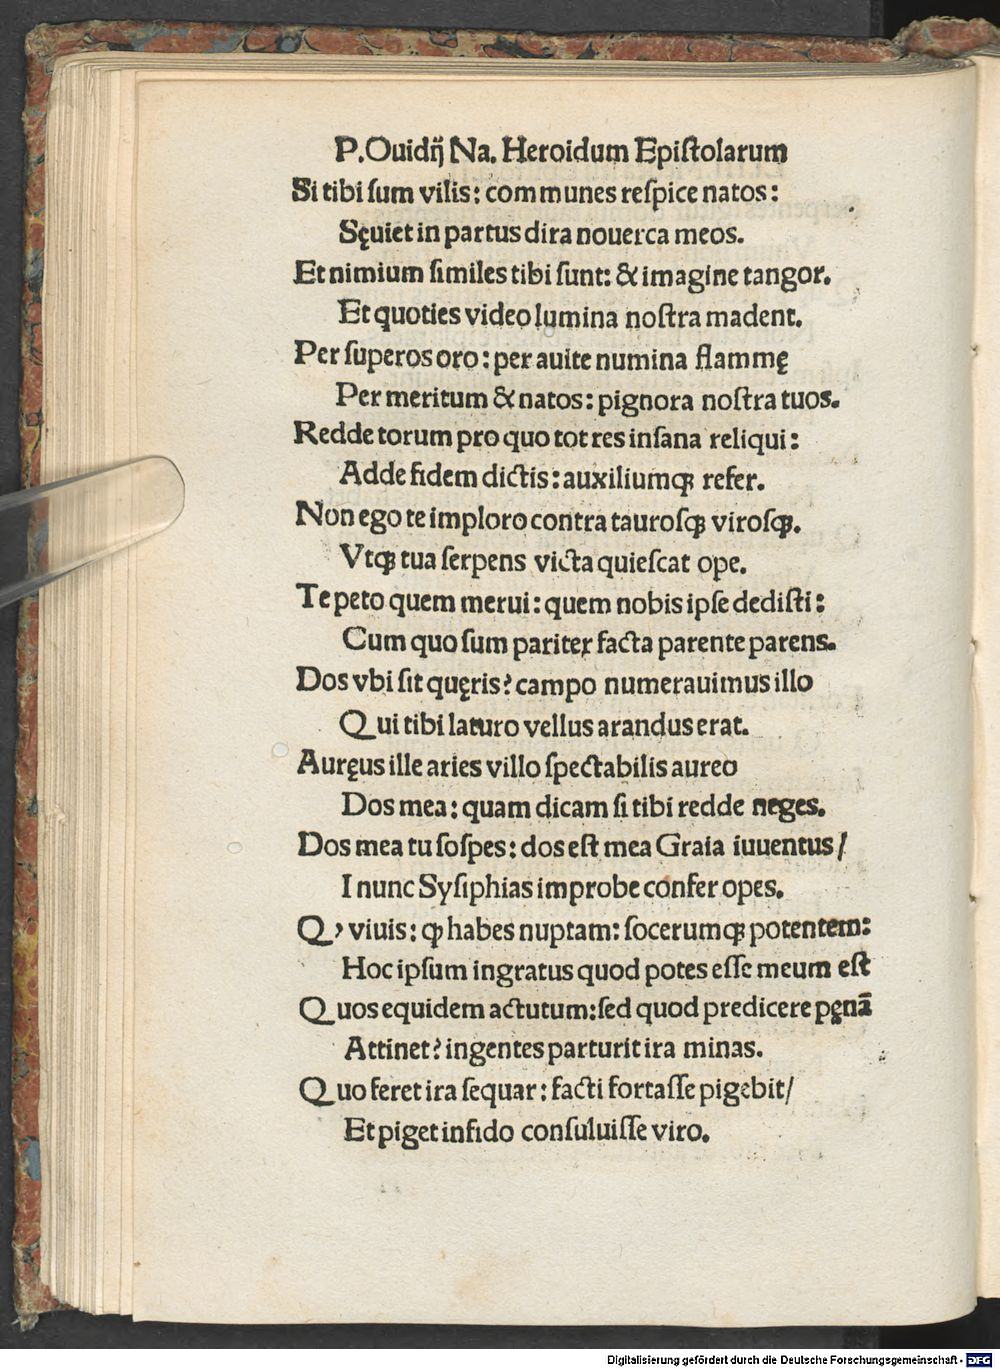 P.Ouidij Na. Heroidum Epiſtolarum
Si tibi ſum vilis: communes reſpice natos:
Sęuiet in partus dira nouerca meos.
Et nimium ſimiles tibi ſunt: & imagine tangor.
Et quoties video lumina noſtra madent.
Per ſuperos oro: per auite numina flammę
Per meritum & natos: pignora noſtra tuos.
Redde torum pro quo tot res inſana reliqui:
Adde fidem dictis: auxiliumqꝫ refer.
Non ego te imploro contra tauroſqꝫ viroſqꝫ.
Vtqꝫ tua ſerpens victa quieſcat ope.
Te peto quem merui: quem nobis ipſe dediſti:
Cum quo ſum pariter facta parente parens.
Dos vbi ſit quęris? campo numerauimus illo
Qui tibi laturo vellus arandus erat.
Auręus ille aries villo ſpectabilis aureo
Dos mea: quam dicam ſi tibi redde neges.
Dos mea tu ſoſpes: dos eſt mea Graia iuuentus/
I nunc Syſiphias improbe confer opes.
Qꝫ viuis: ꝙ habes nuptam: ſocerumqꝫ potentem:
Hoc ipſum ingratus quod potes eſſe meum eſt
Quos equidem actutum: ſed quod predicere pęnā
Attinet? ingentes parturit ira minas.
Quo feret ira ſequar: facti fortaſſe pigebit/
Et piget infido conſuluiſſe viro.
Digitalisierung gefördert durch die Deutsche Forschungsgemeinschaft - DFG